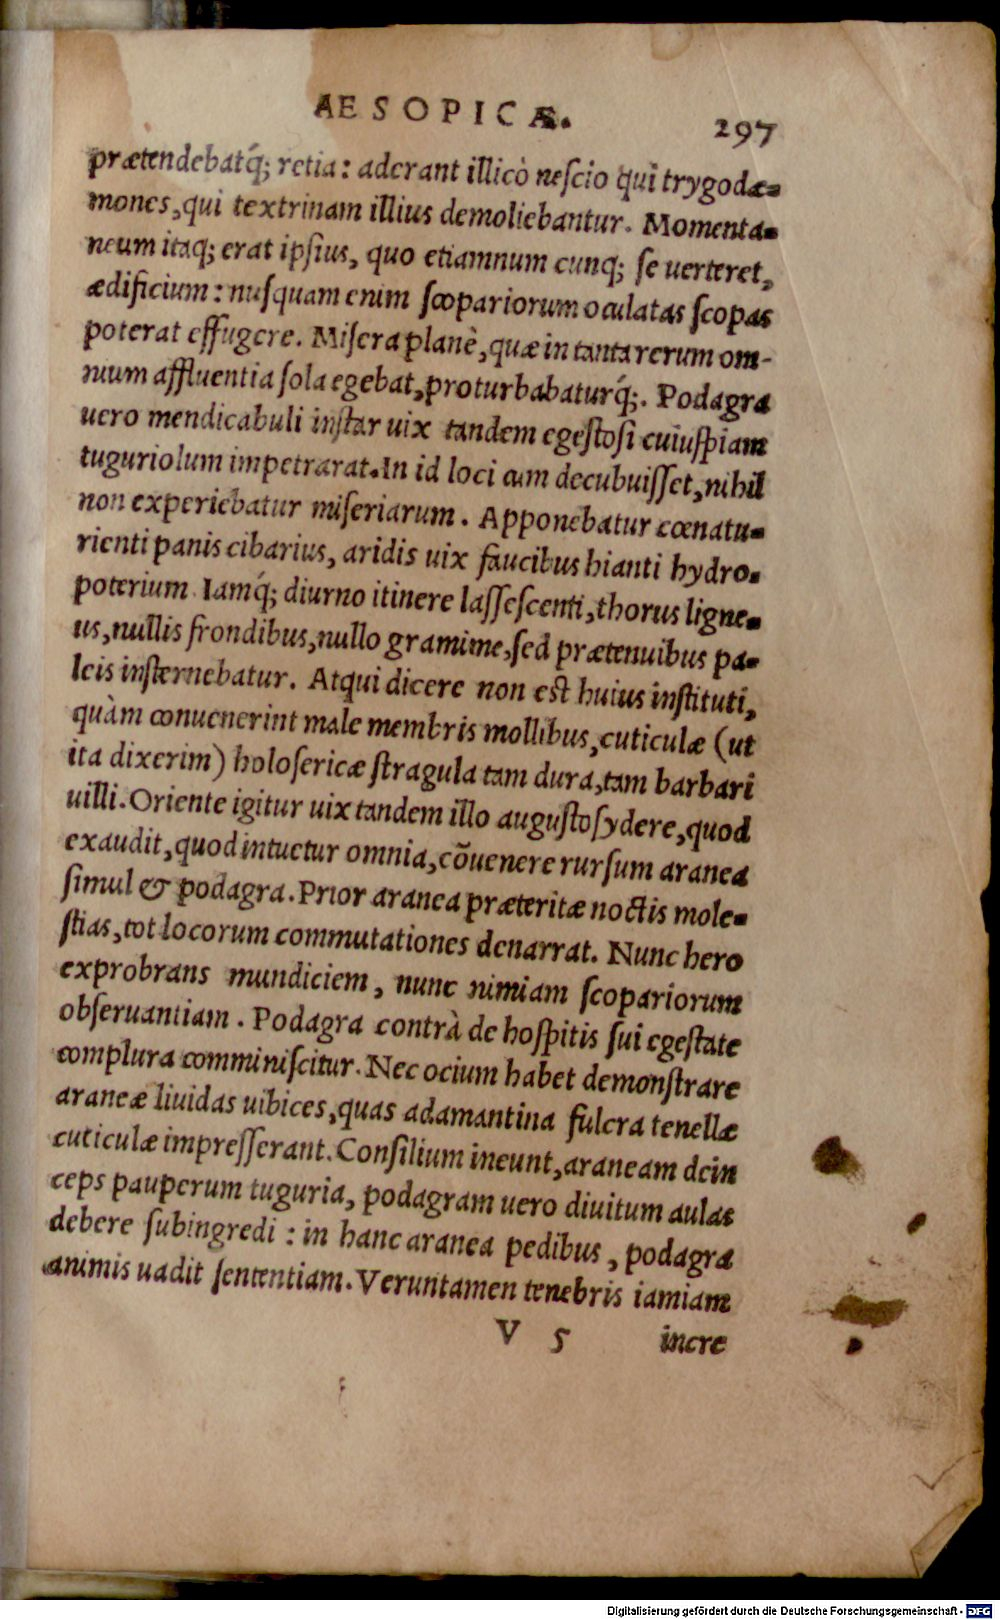 AESOPICÆ.
297
prætendebatq́; retia: aderant illicò neſcio qui trygodæ-
mones, qui textrinam illius demoliebantur. Momenta-
neum itaq; erat ipſius, quo etiamnum cunq; ſe uerteret,
ædificium: nuſquam enim ſcopariorum oculatas ſcopas
poterat effugere. Miſera planè, quæ in tanta rerum om-
nium affluentia ſola egebat, proturbabaturq́;. Podagra
uero mendicabuli inſtar uix tandem egeſtoſi cuiuſpiam
tuguriolum impetrarat. In id loci cum decubuiſſet, nihil
non experiebatur miſeriarum. Apponebatur cœnatu-
rienti panis cibarius, aridis uix faucibus hianti hydro-
poterium. Iamq́; diurno itinere laſſeſcenti, thorus ligne-
us, nullis frondibus, nullo gramine, ſed prætenuibus pa-
leis inſternebatur. Atqui dicere non eſt huius inſtituti,
quàm conuenerint male membris mollibus, cuticulæ (ut
ita dixerim) holoſericæ ſtragula tam dura, tam barbari
uilli. Oriente igitur uix tandem illo auguſto ſydere, quod
exaudit, quod intuetur omnia, cõuenere rurſum aranea
ſimul & podagra. Prior aranea præteritæ noctis mole-
ſtias, tot locorum commutationes denarrat. Nunc hero
exprobrans mundiciem, nunc nimiam ſcopariorum
obſeruantiam. Podagra contrà de hoſpitis ſui egeſtate
complura comminiſcitur. Nec ocium habet demonſtrare
araneæ liuidas uibices, quas adamantina fulcra tenellæ
cuticulæ impreſſerant. Conſilium ineunt, araneam dein
ceps pauperum tuguria, podagram uero diuitum aulas
debere ſubingredi: in hanc aranea pedibus, podagra
animis uadit ſententiam. Veruntamen tenebris iamiam
V 5
incre
Digitalisierung gefördert durch die Deutsche Forschungsgemeinschaft - DFG